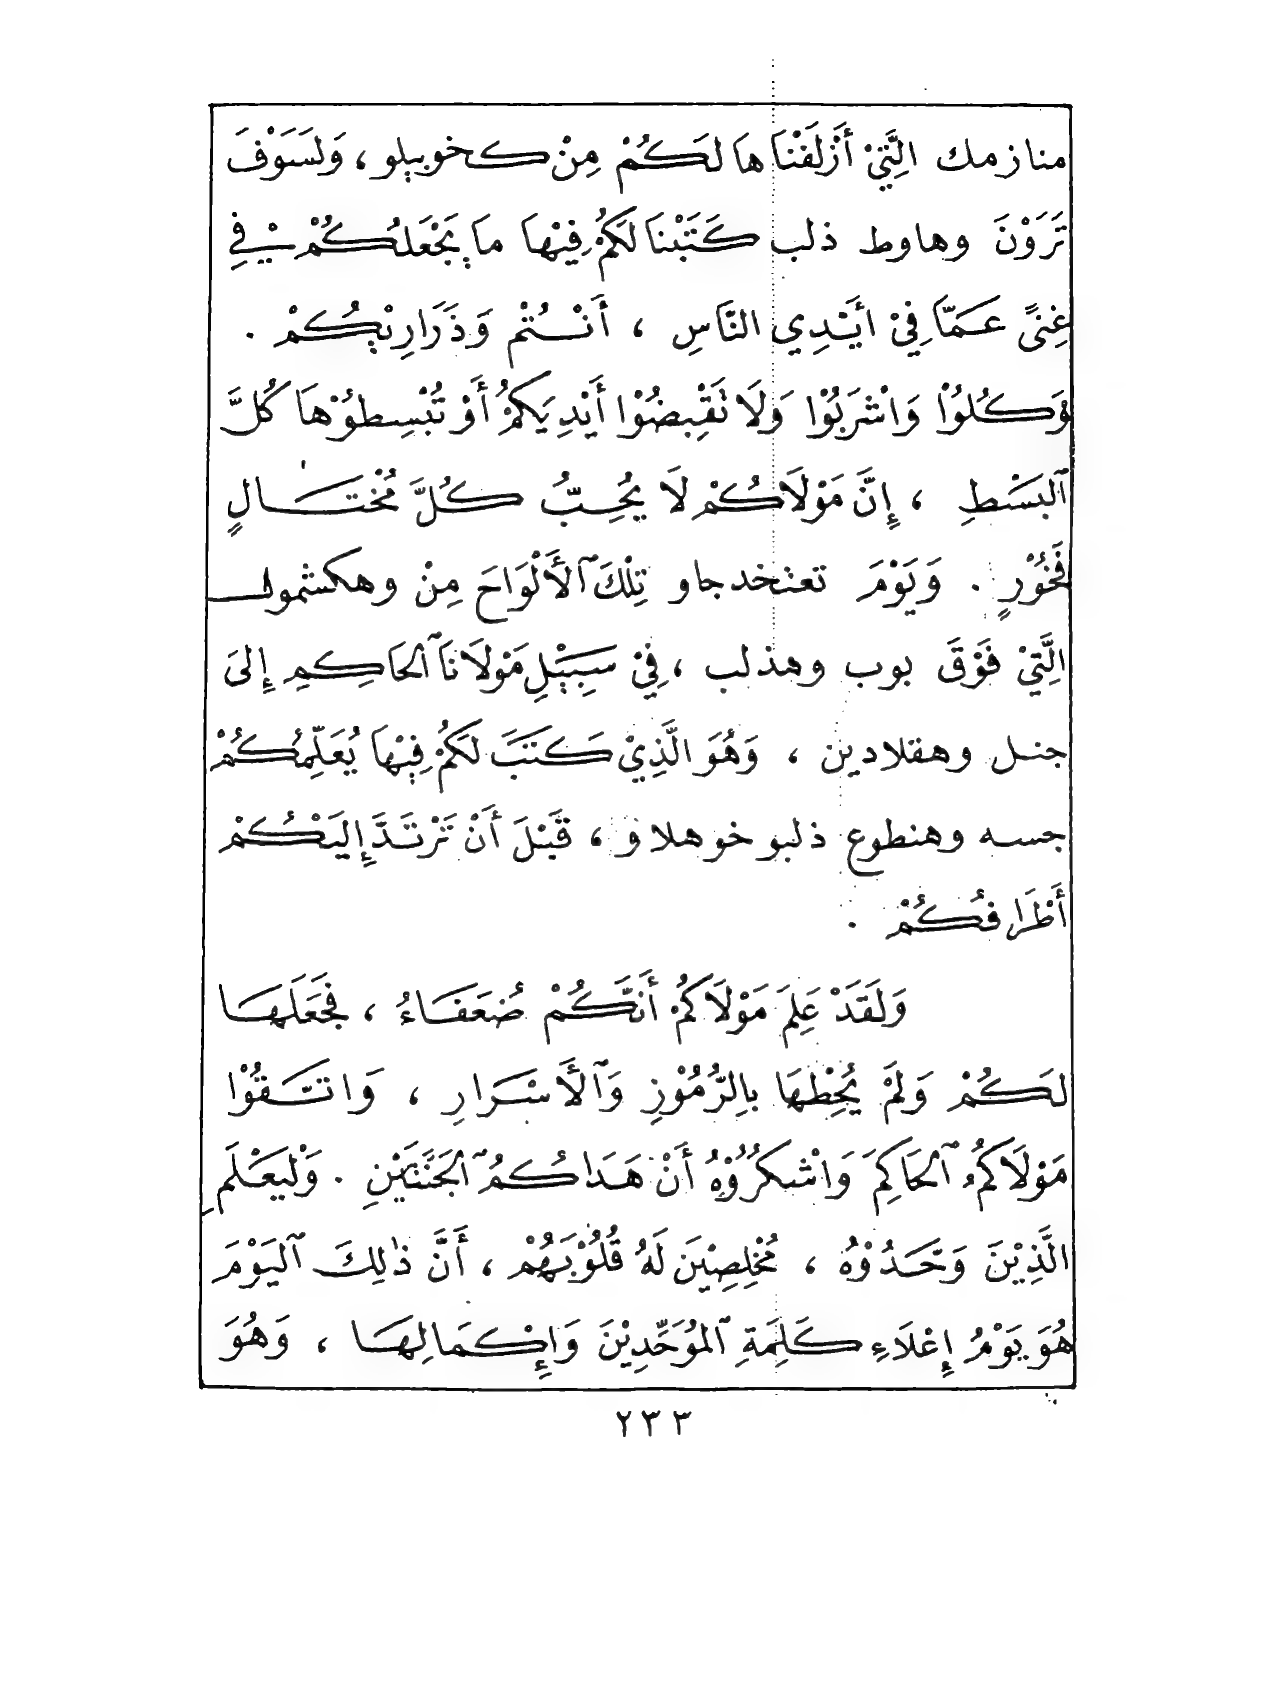 منازمك الَّتِيْ أَزْلَفْنَاهَا لَكُمْ مِنْ كخوبيلو ، وَلَسَوْفَ
تَرَوْنَ وهاوط ذلب كَتَبْنَا لَكُمْ فِيْهَا مَا يَجْعَلُكُمْ فِيْ
غِنىً عَمَّا فِيْ أَيْدِي النَّاسِ ، أَنْتُمْ وَذَرَارِيْكُمْ .
وَكُلُوْا وَاشْرَبُوْا وَلَا تَقْبِضُوْا أَيْدِيَكُمْ أَوْ تُبْسِطُوْهَا كُلَّ
ٱلبَسْطِ ، إِنَّ مَوْلَاكُمْ لَا يُحِبُّ كُلَّ مُخْتَالٍ
فَخُوْرٍ . وَيَوْمَ تعنخدجاو تِلْكَ ٱلأَلْوَاحَ مِنْ وهكشمولـ
الَّتِيْ فَوْقَ بوب وهذلب ، فِيْ سَبِيْلِ مَوْلَانَا ٱلحَاكِمِ إِلىَ
جنل وهقلادين ، وَهُوَ الَّذِيْ كَتَبَ لَكُمْ فِيْهَا يُعَلِّمُكُمْ
جسه وهنطوع ذلبو خوهلاو ، قَبْلَ أَنْ تَرْتَدَّ إِلَيْكُمْ
أَطْرَافُكُمْ .
وَلَقَدْ عَلِمَ مَوْلَاكُمْ أَنَّكُمْ ضُعَفَاءُ ، فَجَعَلَهَا
لَكُمْ وَلَمْ يُحِطْهَا بِالرُّمُوْزِ وَٱلأَسْرَارِ ، وَاتَّقُوْا
مَوْلَاكُمُ ٱلحَاكِمَ وَاشْكُرُوْهُ أَنْ هَدَاكُمُ ٱلجَنَّتَيْنِ . وَلْيَعْلَمِ
الَّذِيْنَ وَحَّدُوْهُ ، مُخْلِصِيْنَ لَهُ قُلُوْبَهُمْ ، أَنَّ ذٰلِكَ ٱليَوْمَ
هُوَ يَوْمُ إِعْلَاءِ كَلِمَةِ ٱلمُوَحِّدِيْنَ وَإِكْمَالِهَا ، وَهُوَ
٢٣٣